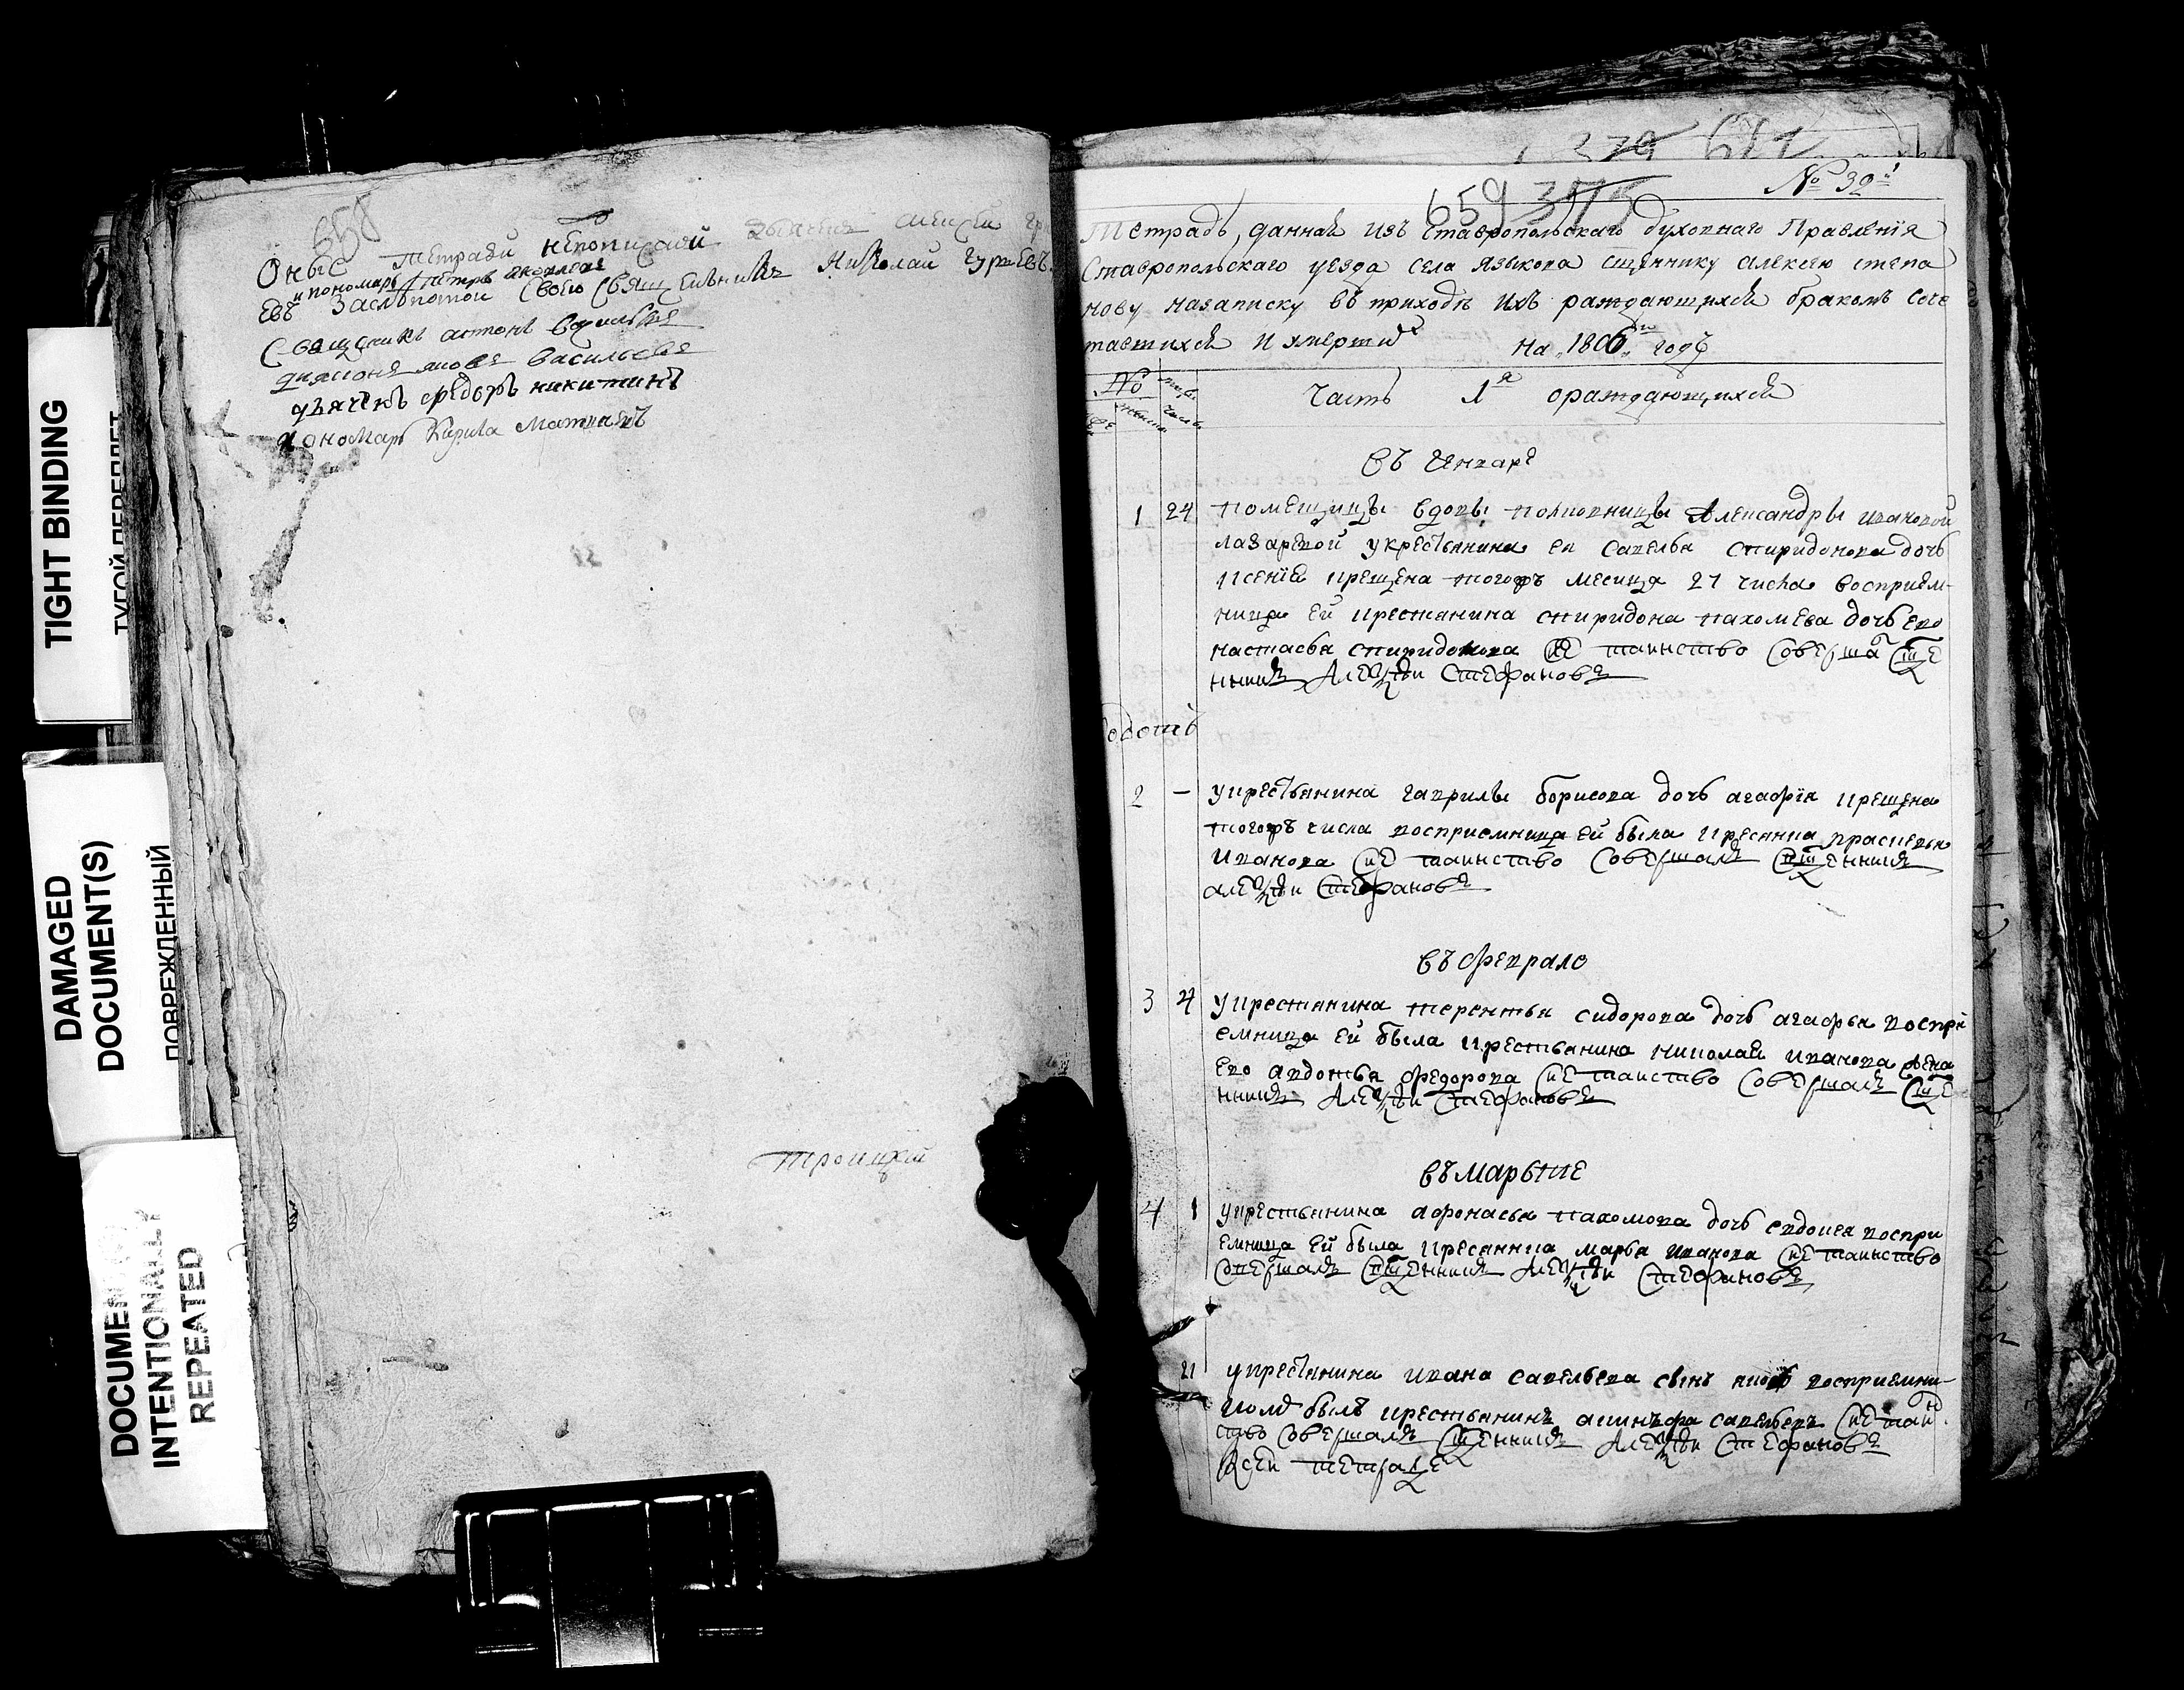 TIGHT BINDING
ТУГОЙ ПЕРЕПЛЕТ
DAMAGED
DOCUMENT(S)
ПОВРЕЖДЕННЫЙ
DOCUMENT
INTENTIONALLY
REPEATED
658
Оные тетради
и пономарь петръ
евъ Заслепотою Своею Священникъ Николай Гурьевъ
Священникъ антонъ васильевъ
диаконъ яковъ васильевъ
дьячекъ федоръ никитинъ
пономарь Кирила Матвеевъ
Троицкой
379
659 375
№ 39й
Тетрадь, данная изъ Ставропольскаго духовнаго Правленія
Ставропольскаго уезда села Языкова сщеннику алексею степа
нову назаписку въ приходѣ ихъ раждающихся бракомъ соче
тавшихся и умерших на 1806й годъ
№ числы
Часть 1я ораждающихся
въ Генваре
1 24 помещицы вдовы полковницы Александры ивановой
лазаревой укрестьянина ея савелья спиридонова дочь
ксенія крещена тогожъ месяца 27 числа восприем-
ница ей крестянина спиридона пахомева дочь ево
настасья спиридонова сие таинство совершал сще
нникъ Алексѣи Стефановъ
2 — укрестьянина гаврилы борисова дочь агафія крещена
тогожъ числа восприемница ей была кресянка прасковья
иванова сие таинство совершалъ сщенникъ
алексѣи Стефановъ
въ феврале
3 4 укрестянина терентья сидорова дочь агафья воспри
емница ей была крестьянина николая иванова жена
ево авдотья федорова сие таиство совершалъ сще
нникъ Алексѣи Стефановъ
въ мартѣ
4 1 укрестьянина афонасья пахомова дочь евдокея воспри
емница ей была кресянка марья иванова сие таинство
совершалъ сщенникъ Алексѣи Стефановъ
21 укрестьянина ивана савельева сынъ восприемни-
комъ былъ крестьянинъ савельевъ сие таин
ство совершалъ сщенникъ Алексѣи Стефановъ
тетраде